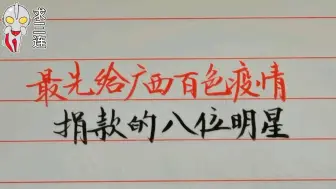 求三连
最先给广西百色疫情
捐款的八位明星